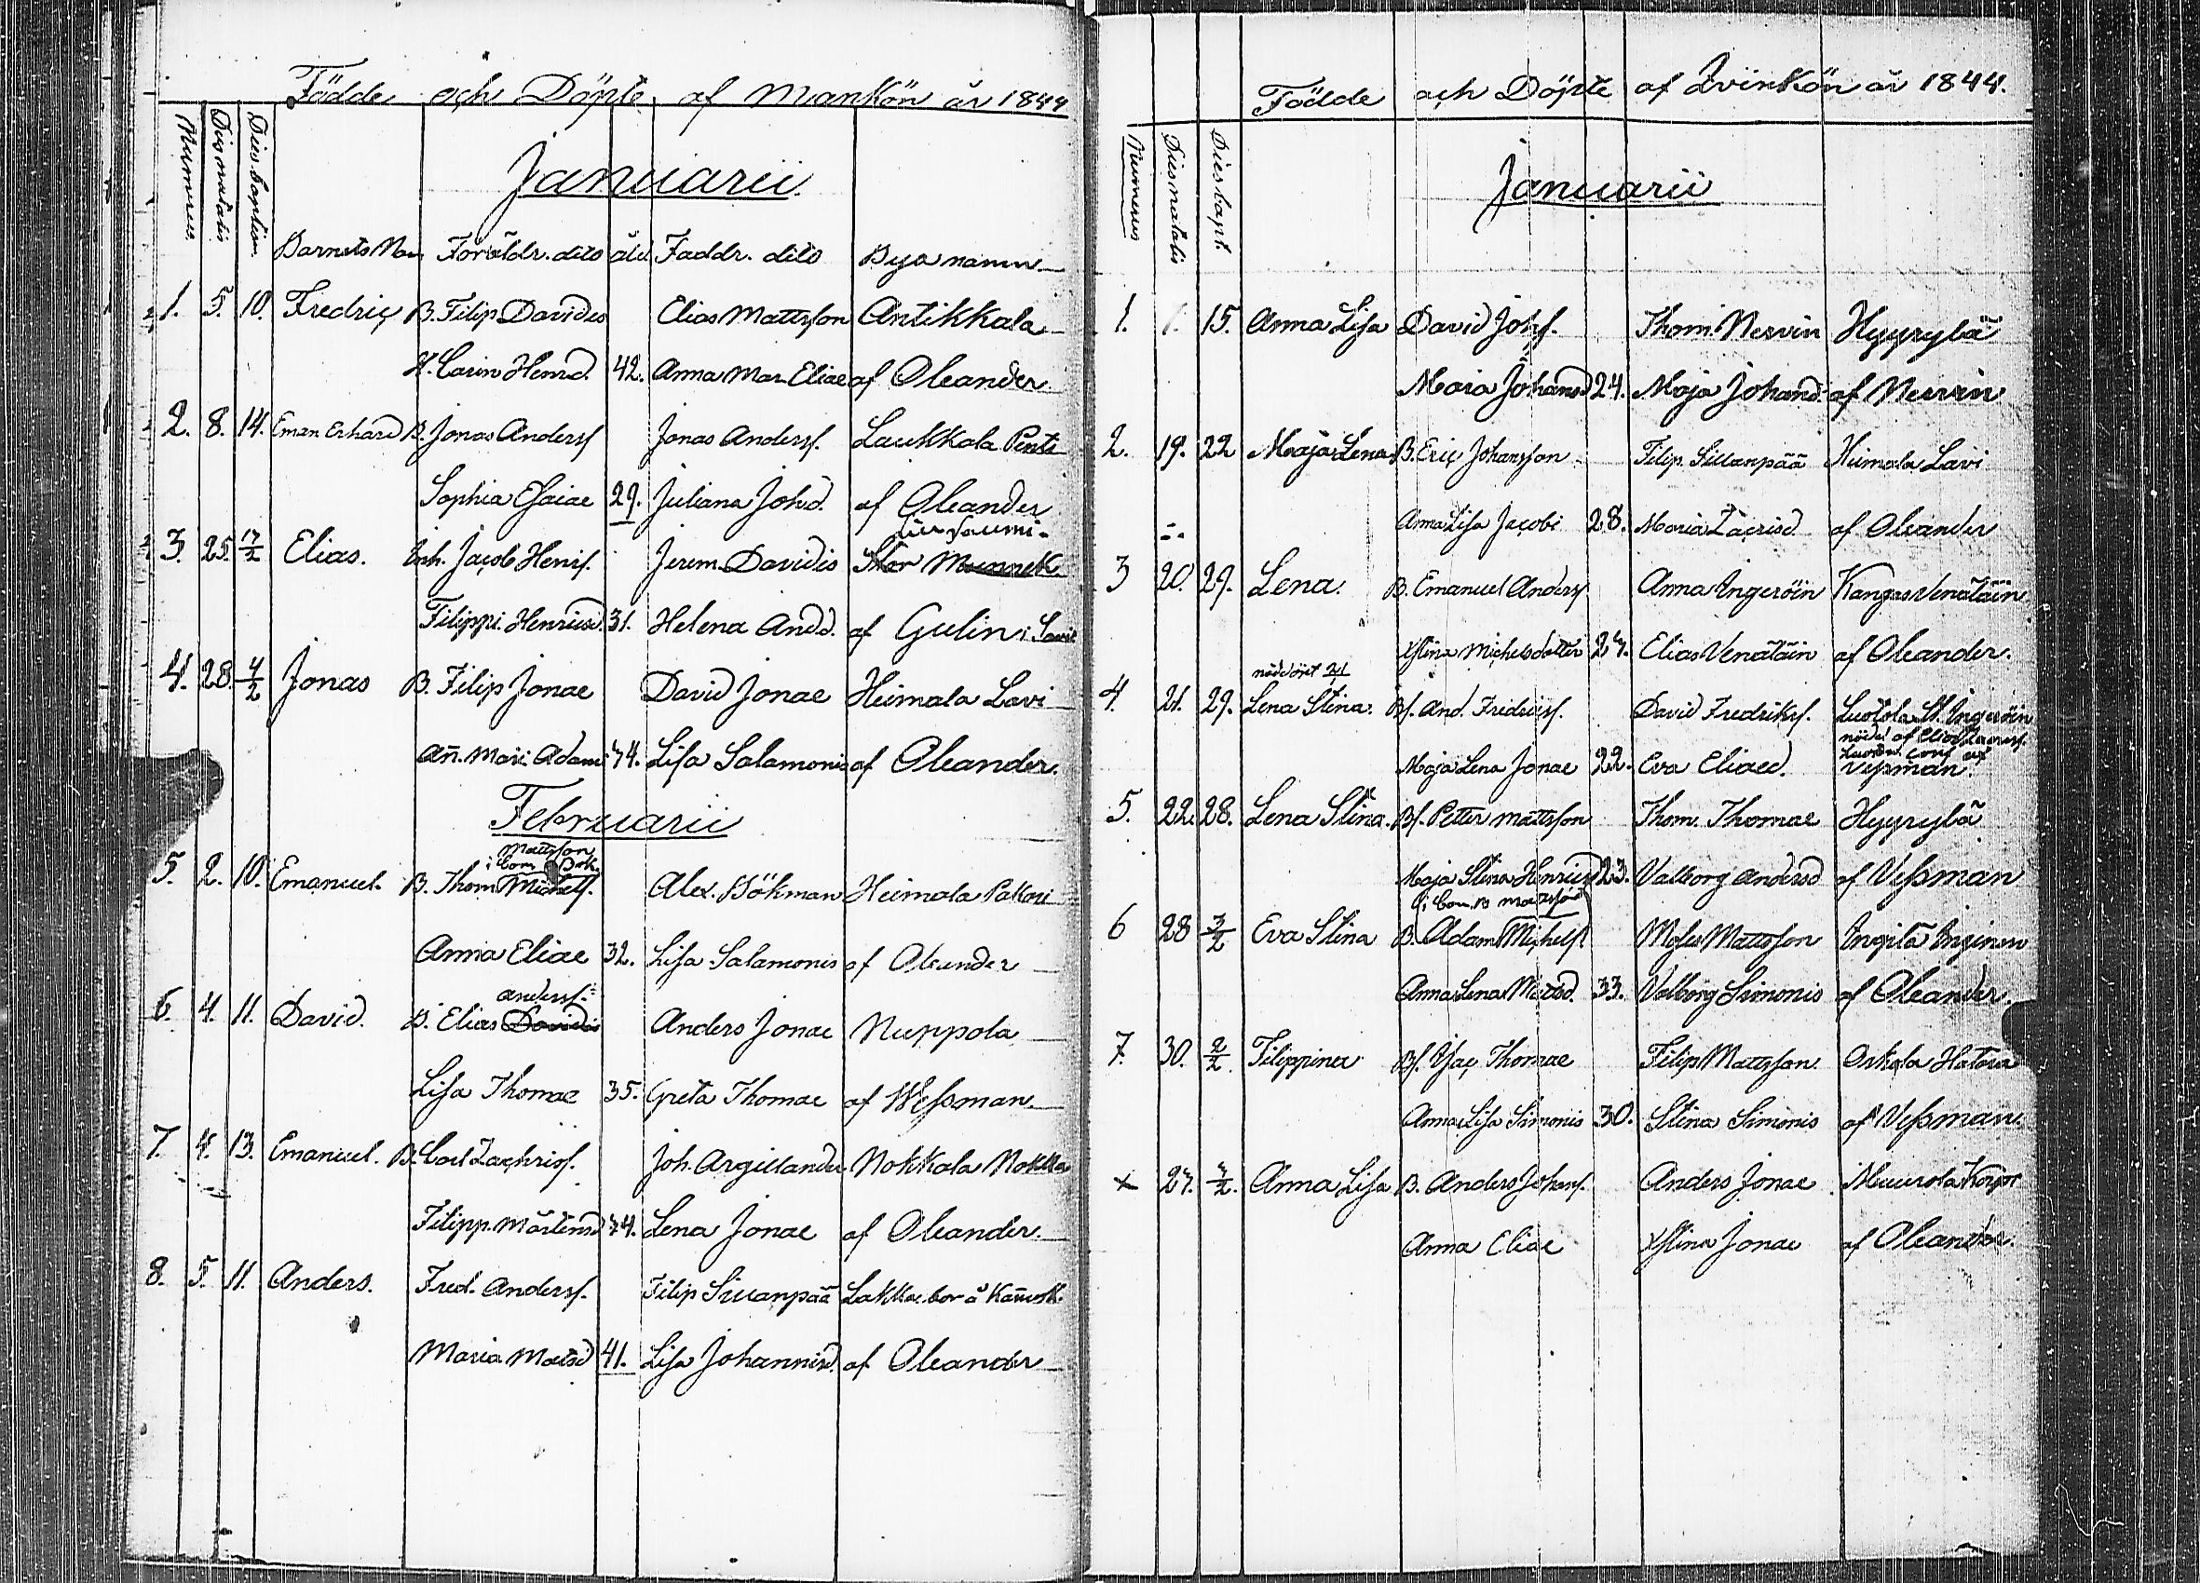 Födde och Döpte af Mankön år 1844
Numerus Dies natalis Dies baptism
Januarii
Barnets Nam Föräldr. dito åld. Faddr. dito Bya namn
1. 5. 10. Fredric B. Filip Davids Elias Mattsson Antikkala
H. Carin Henrd. 42. Anna Mar. Eliae af Oleander.
2. 8. 14. Eman Erhard B. Jonas Andersf Jonas Andersf. Laukkala Pents
Sophia Esaiae 29. Juliana Johd. af Oleander
3. 25. 17/2 Elias. Inh. Jacob Henrf. Jerem. Davidis Stor Munnek.
Filippi. Henriusd. 31. Helena Andd. af Gulin i
4. 28. 4/2 Jonas B. Filip Jonae David Jonae Heimala Lavi
Añ. Mari Adami 44. Lisa Salamonis af Oleander.
Februarii
Mattsson
i Com Bok
5. 2. 10. Emanuel. B. Thom Michelsf. Alex. Bökman Heimala Pakari
Anna Eliae 32. Lisa Salamonis af Oleander
andersf.
6. 4. 11. David. B. Elias Davidis Anders Jonae Nuppola
Lisa Thomae 35. Greta Thomae af Wessman.
7. 4. 13. Emanuel. B. Carl Zachrisf. Joh. Argillander Nokkala Nokka
Filipp. Mårtensd 44. Lena Jonae af Oleander.
8. 5. 11. Anders. Fred. Andersf. Filip Sillanpää Lakka bor å
Maria Matsd 41. Lisa Johannisd. af Oleander
Födde och Döpte af Qvinkön år 1844.
Numerus Dies natalis Dies bapt.
Januarii
1. 1. 15. Anna Lisa David Johf. Thom. Nervin Hyyrylä
Maria Johansd 24. Maja Johand. af Nervin
2. 19. 22 Maja Lena B. Eric Johansson Filip. Sillanpää Heimala Lavi
Anna Lisa Jacobi 28. Maria Zacrisd. af Oleander
3 20. 29. Lena. B. Emanuel Andersf Anna Ingeröin Kangas Venäläin
Xstina Michelsdotter 27. Elias Venäläin af Oleander.
nöddöpt 21
4. 21. 29. Lena Stina. Bf. And. Fredricsf. David Fredriksf. Luotola St. Ingeröin
nöddöpt af Elias Zacrisf.
Maja Lena Jonae 22. Eva Eliaed. Vessman.
5. 22. 28. Lena Stina. Bf. Petter Mattsson Thom. Thomae Hyyrylä
Maja Stina Henricsd 23. Valborg Andersd af Vessman
i Com. B Mattsson
6 28 3/2 Eva Stina B. Adam Michelsf Moses Mattsson Ingilä Inginen
Anna Lena Matsd. 33. Valborg Simonis af Oleander.
7. 30. 2/2 Filippina Bf. Isac Thomae Filip Mattsson. Oskola Hatara
Anna Lisa Simonis 30. Stina Simonis af Vessman.
x 27. 4/2. Anna Lisa B. Anders Johansf. Anders Jonae Muurola Korpi
Anna Eliae Xstina Jonae af Oleander.